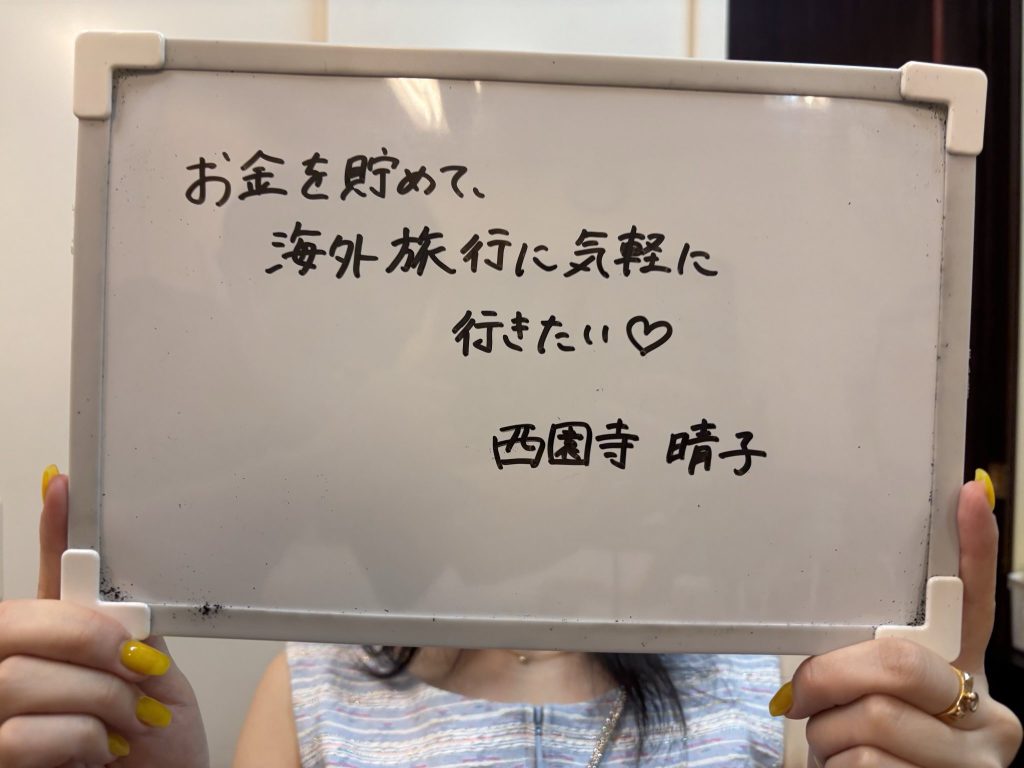 お金を貯めて、
海外旅行に気軽に
行きたい♡
西園寺 晴子